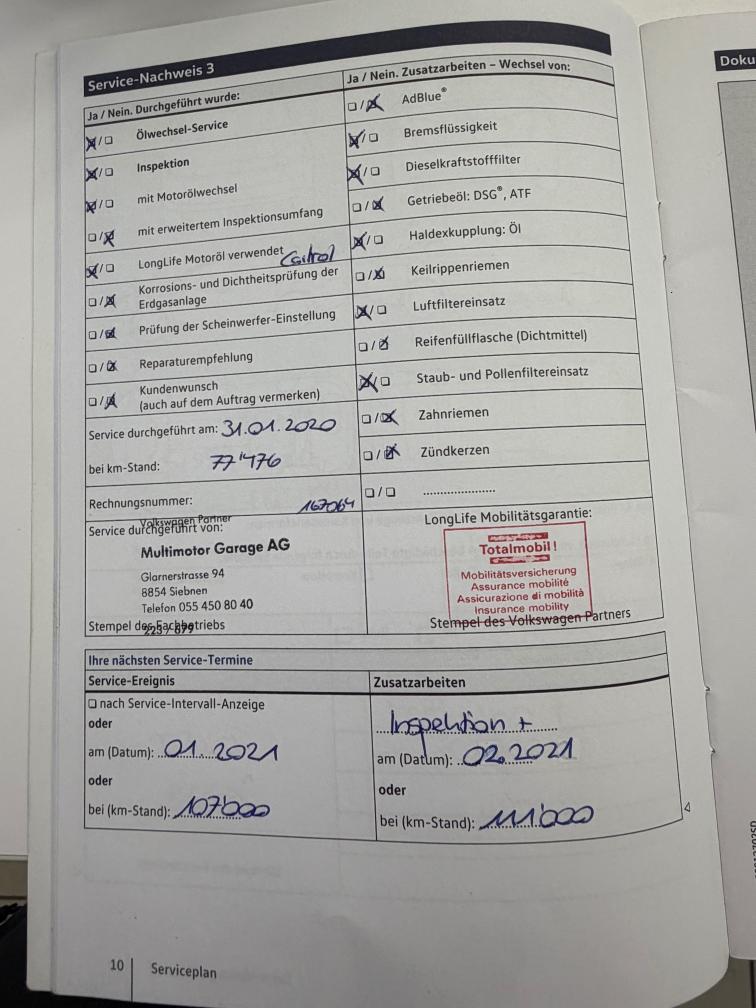 Service-Nachweis 3
Ja / Nein. Durchgeführt wurde:
☒/☐ Ölwechsel-Service
☒/☐ Inspektion
☒/☐ mit Motorölwechsel
☐/☒ mit erweitertem Inspektionsumfang
☒/☐ LongLife Motoröl verwendet Castrol
☐/☒ Korrosions- und Dichtheitsprüfung der
Erdgasanlage
☐/☒ Prüfung der Scheinwerfer-Einstellung
☐/☒ Reparaturempfehlung
☐/☒ Kundenwunsch
(auch auf dem Auftrag vermerken)
Service durchgeführt am: 31.01.2020
bei km-Stand: 77'476
Rechnungsnummer: 167064
Ja / Nein. Zusatzarbeiten – Wechsel von:
☐/☒ AdBlue®
☒/☐ Bremsflüssigkeit
☒/☐ Dieselkraftstofffilter
☐/☒ Getriebeöl: DSG®, ATF
☒/☐ Haldexkupplung: Öl
☐/☒ Keilrippenriemen
☒/☐ Luftfiltereinsatz
☐/☒ Reifenfüllflasche (Dichtmittel)
☒/☐ Staub- und Pollenfiltereinsatz
☐/☒ Zahnriemen
☐/☒ Zündkerzen
☐/☐ .....................
Service durchgeführt von:
Volkswagen Partner
Multimotor Garage AG
Glarnerstrasse 94
8854 Siebnen
Telefon 055 450 80 40
Stempel des Fachbetriebs
LongLife Mobilitätsgarantie:
Totalmobil!
Mobilitätsversicherung
Assurance mobilité
Assicurazione di mobilità
Insurance mobility
Stempel des Volkswagen Partners
Ihre nächsten Service-Termine
Service-Ereignis
☐ nach Service-Intervall-Anzeige
oder
am (Datum): 01.2021
oder
bei (km-Stand): 107'000
Zusatzarbeiten
Inspektion +
am (Datum): 02.2021
oder
bei (km-Stand): 111'000
10 Serviceplan
Doku